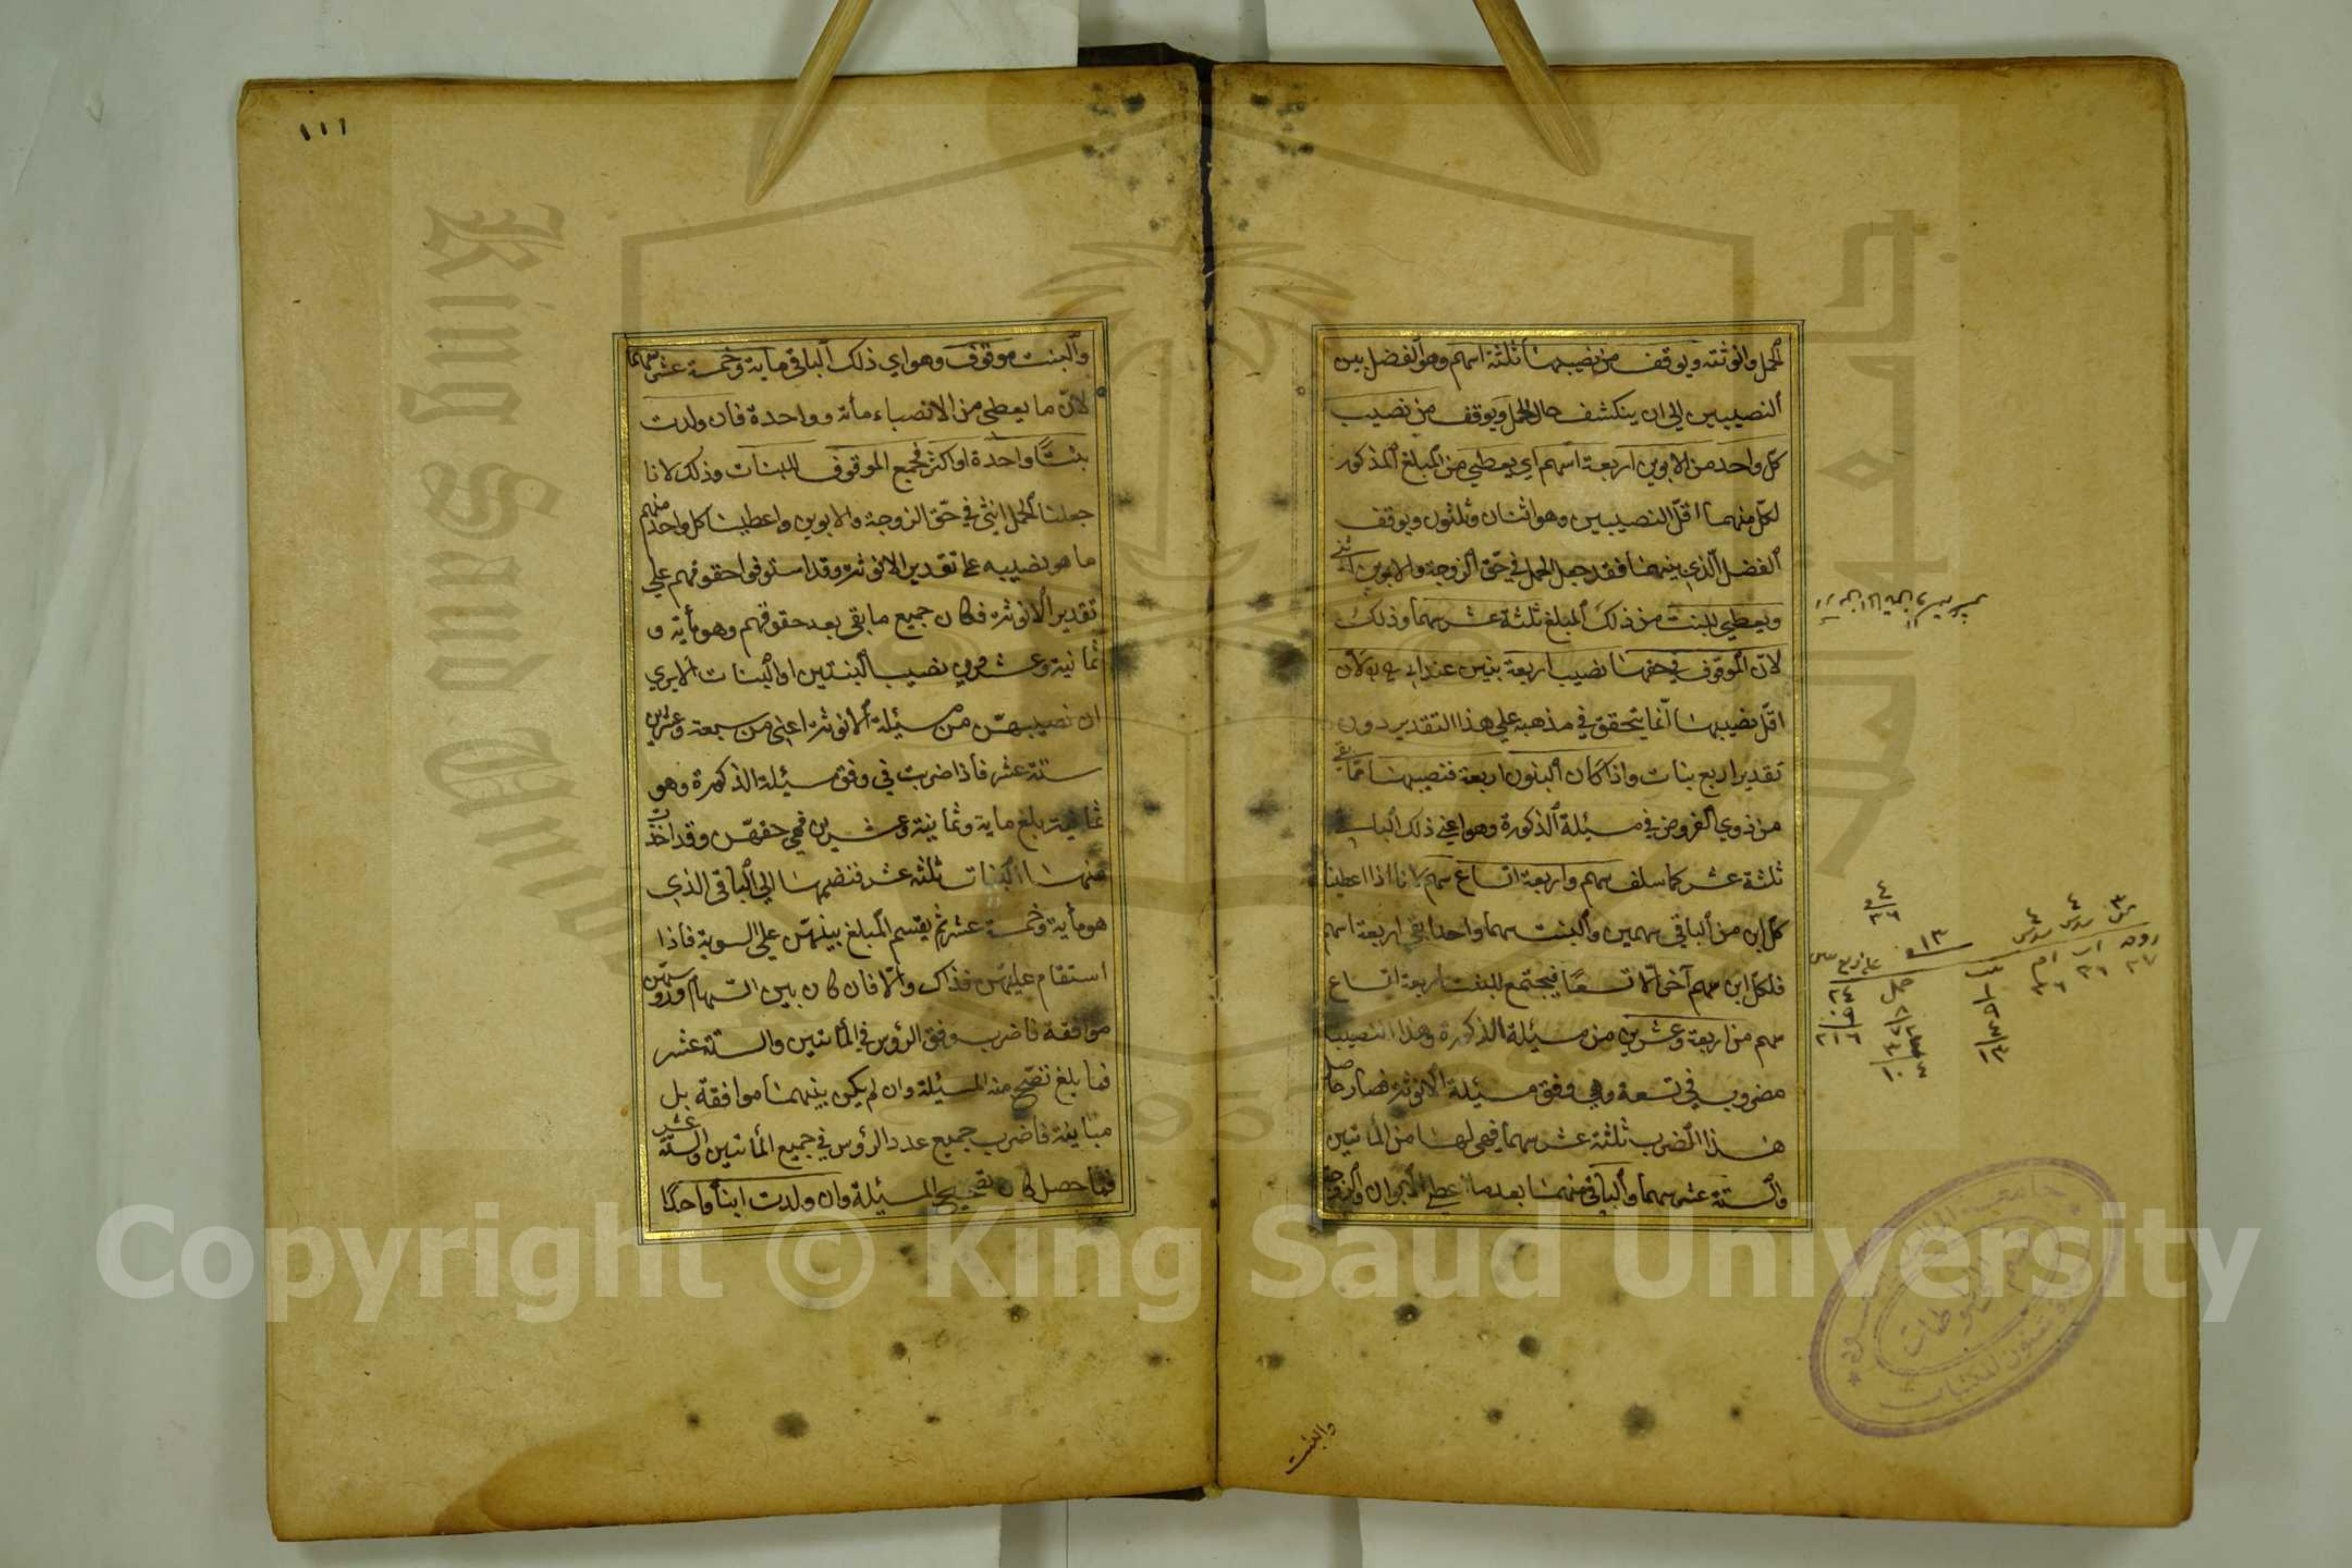 الحمل وانوثته ويوقف من نصيبها ثلثة اسهم وهو الفضل بين
النصيبين الى ان ينكشف حال الحمل ويوقف من نصيب
كل واحد من الابوين اربعة اسهم اي يعطي من المبلغ المذكور
لكل منهما اقل النصيبين وهو اثنان وثلثون ويوقف
الفضل الذي بينهما فقد جعل الحمل في حق الزوجة والابوين انثى
ويعطي للبنت من ذلك المبلغ ثلثة عشر سهما وذلك
لان الموقوف في حقها نصيب اربعة بنين عند ابي ح لان
اقل نصيبها انما يتحقق في مذهبه علي هذا التقدير دون
تقدير اربع بنات واذا كان البنون اربعة فنصيبها مما بقي
من ذوي الفروض في مسئلة الذكورة وهو اعني ذلك الباقي
ثلثة عشر كما سلف سهم واربعة اتساع سهم لانا اذا اعطينا
كل ابن من الباقي سهمين والبنت سهما واحدا بقي اربعة اسهم
فلكل ابن سهم آخر الا تسعا فيجتمع للبنت اربعة اتساع
سهم من اربعة وعشرين من مسئلة الذكورة وهذا النصيب
مضروب في تسعة وهي وفق مسئلة الانوثة فصار حاصل
هذا الضرب ثلثة عشر سهما فهي لها من المأتين
والستة عشر سهما والباقي منها بعد ما اعطي الابوان والزوجة
والبنت
١١١
والبنت موقوف وهو اي ذلك الباقي ماية وخمسة عشر سهما
لان ما يعطي من الانصباء مأة وواحدة فان ولدت
بنتا واحدة او اكثر فجميع الموقوف للبنات وذلك لانا
جعلنا الحمل انثي في حق الزوجة والابوين واعطينا كل واحد منهم
ما هو نصيبه على تقدير الانوثة وقد استوفوا حقوقهم علي
تقدير الانوثة فكان جميع ما بقي بعد حقوقهم وهو مأية و
ثمانية وعشرون نصيب البنتين او البنات الا يري
ان نصيبهن من مسئلة الانوثة اعني من سبعة وعشرين
ستة عشر فاذا ضربت في وفق مسئلة الذكورة وهو
ثمانية بلغ ماية وثمانية وعشرين فهي حقهن وقد اخذت
منها البنات ثلثة عشر فنضمها الي الباقي الذي
هو مأية وخمسة عشر ثم يقسم المبلغ بينهن علي السوية فاذا
استقام عليهن فذاك والا فان كان بين السهام ورؤسهن
موافقة فاضرب وفق الرؤس في المأتين والستة عشر
فما بلغ تصح منه المسئلة وان لم يكن بينهما موافقة بل
مباينة فاضرب جميع عدد الرؤس في جميع المأتين والستة عشر
فما حصل كان تصحيح المسئلة وان ولدت ابنا واحدا
Copyright © King Saud University
King Saud University